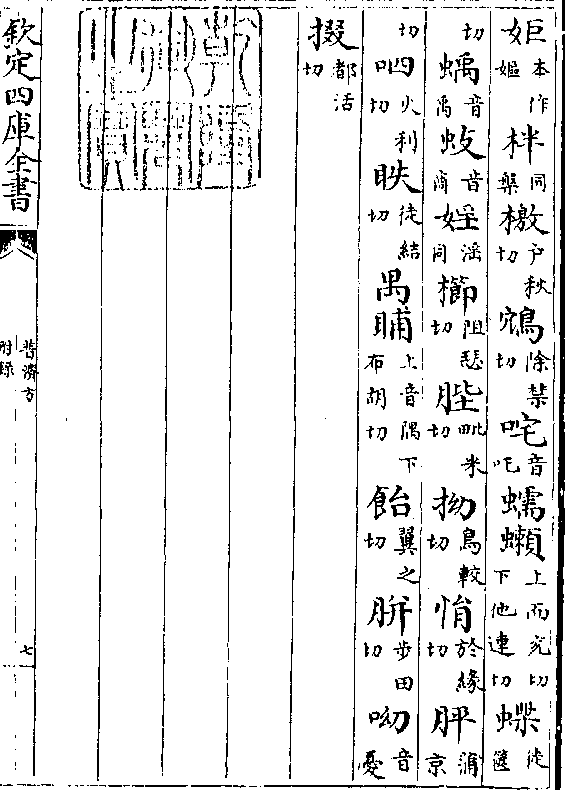 姖本作嫗柈同槃檄戶秋切鴆除禁切咤音吒蠕上而兖切下他連切蝶徒篋
切蝺音禹音婬淫同櫛阻瑟切䏶毗米切拗烏較切悁於緣切胓滂京
切呬火利切眣徒結切禺上音隅下布胡切飴翼之切胼步田切呦音憂
掇都活切
欽定四庫全書
普濟方
附錄
七